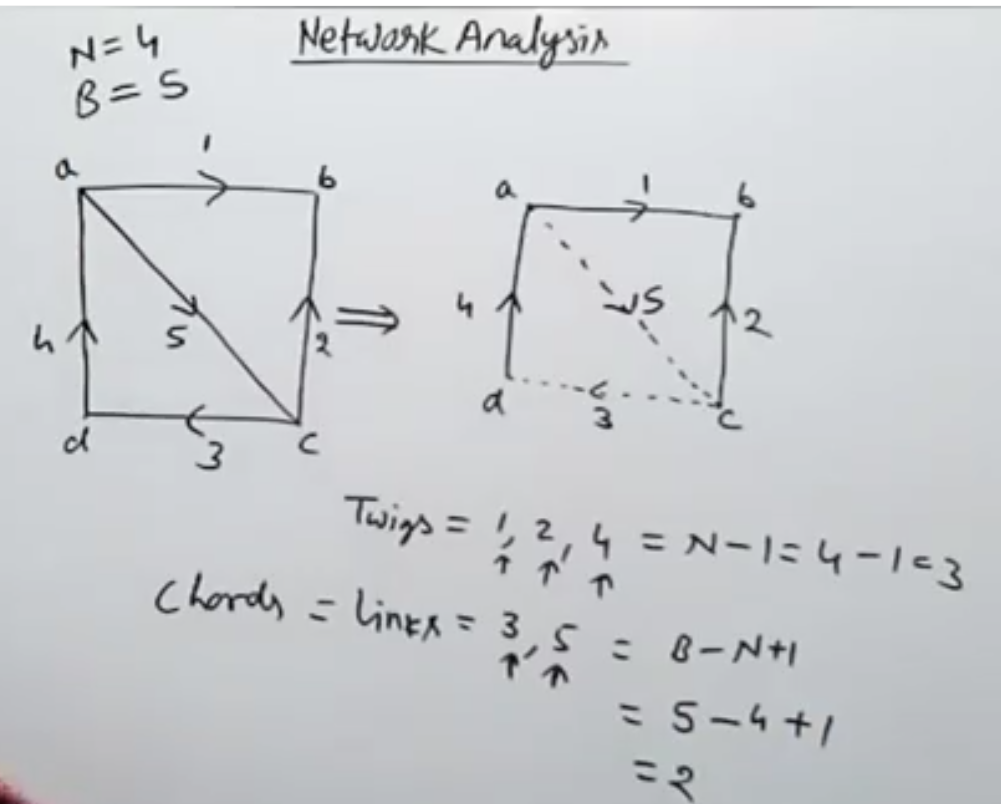 Network Analysis
N=4
B=5
a 1 b
4 5 2
d 3 c
⇒
a 1 b
4 5 2
d 3 c
Twigs = 1, 2, 4 = N-1 = 4-1=3
↑ ↑ ↑
Chords = Links = 3, 5 = B-N+1
↑ ↑
= 5-4+1
=2